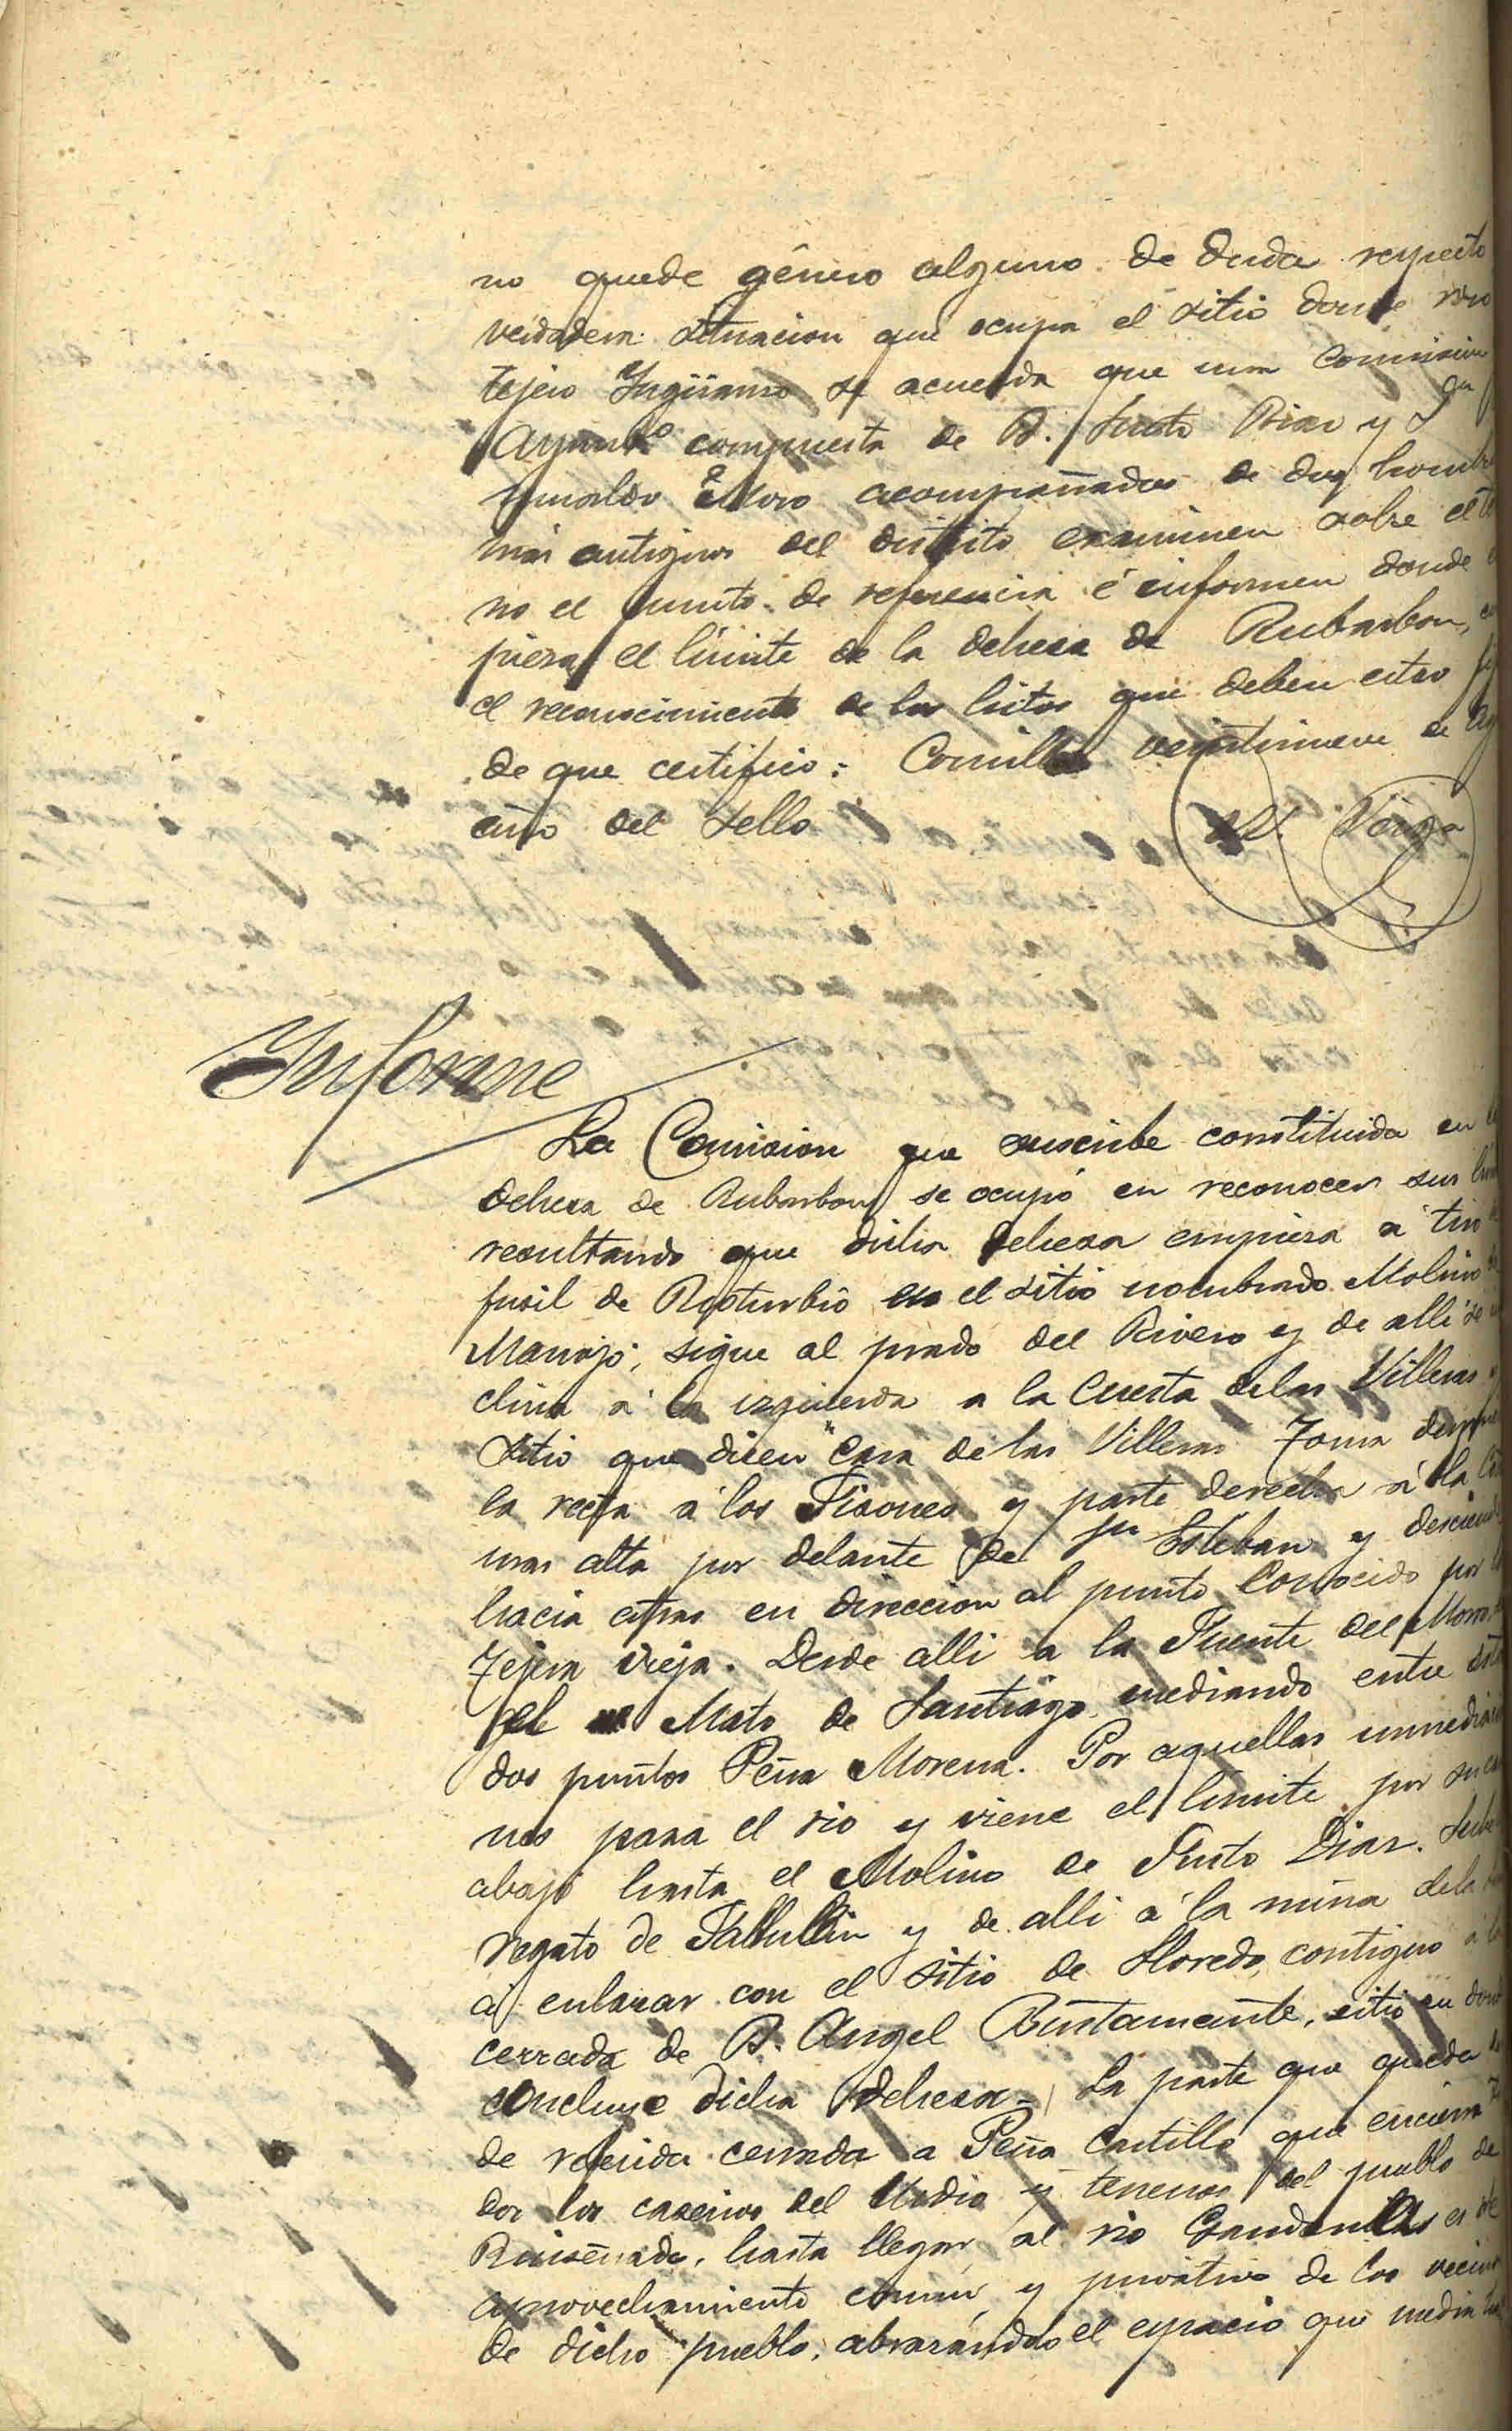 no quede género alguno de duda respecto
verdadera situacion que ocupa el sitio donde
tejero Yngüanzo se acuerda que una Comision
Ayunto compuesta de D. Justo Diaz y
acompañados de dos hombre
más antiguos del distrito examinen sobre el te
no el punto de referencia é informen donde
pieza el límite de la dehesa de Rubarbon,
el reconocimiento de los hitos que deben estar
de que certifico: Comillas veintinueve de Ag
año del sello
Informe
La Comision que suscribe constituida en
dehesa de Rubarbon, se ocupó en reconocer sus
resultando que dicha dehesa empieza a tiro
fusil de Rioturbio en el sitio nombrado Molino
Manojo; sigue al prado del Rivero y de alli se
clina á la izquierda a la Cuesta de las Villeras
sitio que dicen "Casa de las Villeras Toma
la recta á los Tisones y parte derecha á la
mas alta por delante de Sn Esteban y desciend
hacia atras en direccion al punto conocido por
Tejera vieja. Desde alli a la Fuente del
el Mato de Santiago mediando entre
dos puntos Peña Morena. Por aquellas inmediacio
nes pasa el rio y viene el límite por su
abajo hasta el Molino de Justo Diaz. Sube
regato de y de alli á la mina de la
a enlazar con el sitio de Lloredo, contiguo á
cerrada de D. Angel Bustamante, sitio en don
concluye dicha dehesa = La parte que queda
de referida cerrada a Peña Castillo que encierra
dos los caserios del y terrenos del pueblo de
Ruiseñada, hasta llegar al rio Gandarillas es de
aprovechamiento comun y privativo de los vecin
de dicho pueblo; abrazándolo el espacio que media